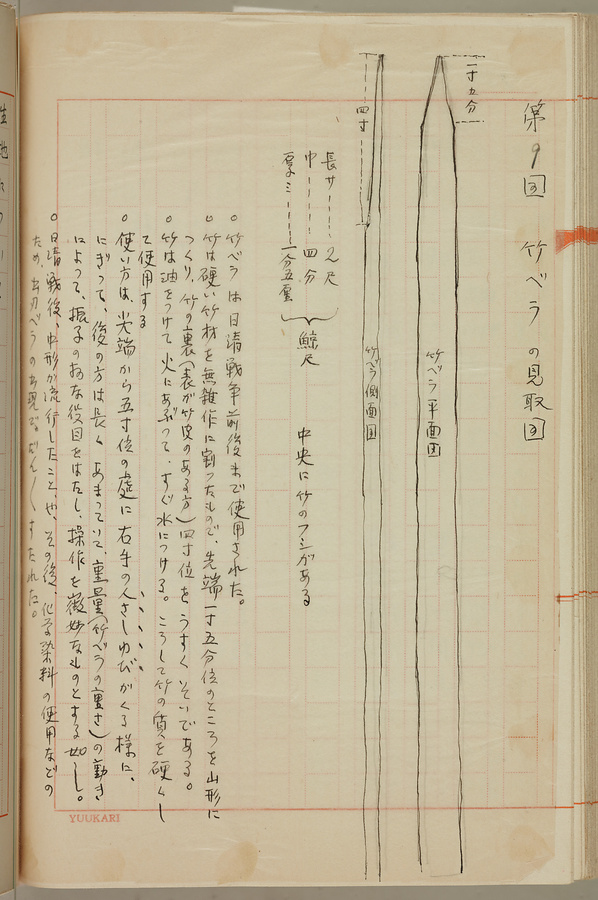 第9図 竹ベラの見取図
一寸五分
竹ベラ平面図
四寸
竹ベラ側面図
長サ……2尺
巾……四分
厚ミ……一分五厘
鯨尺
中央に竹のフシがある
○竹ベラは日清戦争前後まで使用された。
○竹は硬い竹材を無雑作に割ったもので、先端一寸五分位のところを山形に
つくり、竹の裏（表が竹皮のある方）四寸位をうすくそいである。
○竹は油をつけて火にあぶって、すぐ水につける。こうして竹の質を硬くし
て使用する
○使い方は、尖端から五寸位の処に右手の人さしゆびがくる様に、
にぎって、後の方は長くあまっていて、重量（竹ベラの重さ）の動き
によって、振子のような役目をはたし、操作を微妙なものとする如し。
○日清戦後、中形が流行したことや、その後、化学染料の使用などの
ため、出刃ベラの出現でだん〱すたれた。
YUUKARI